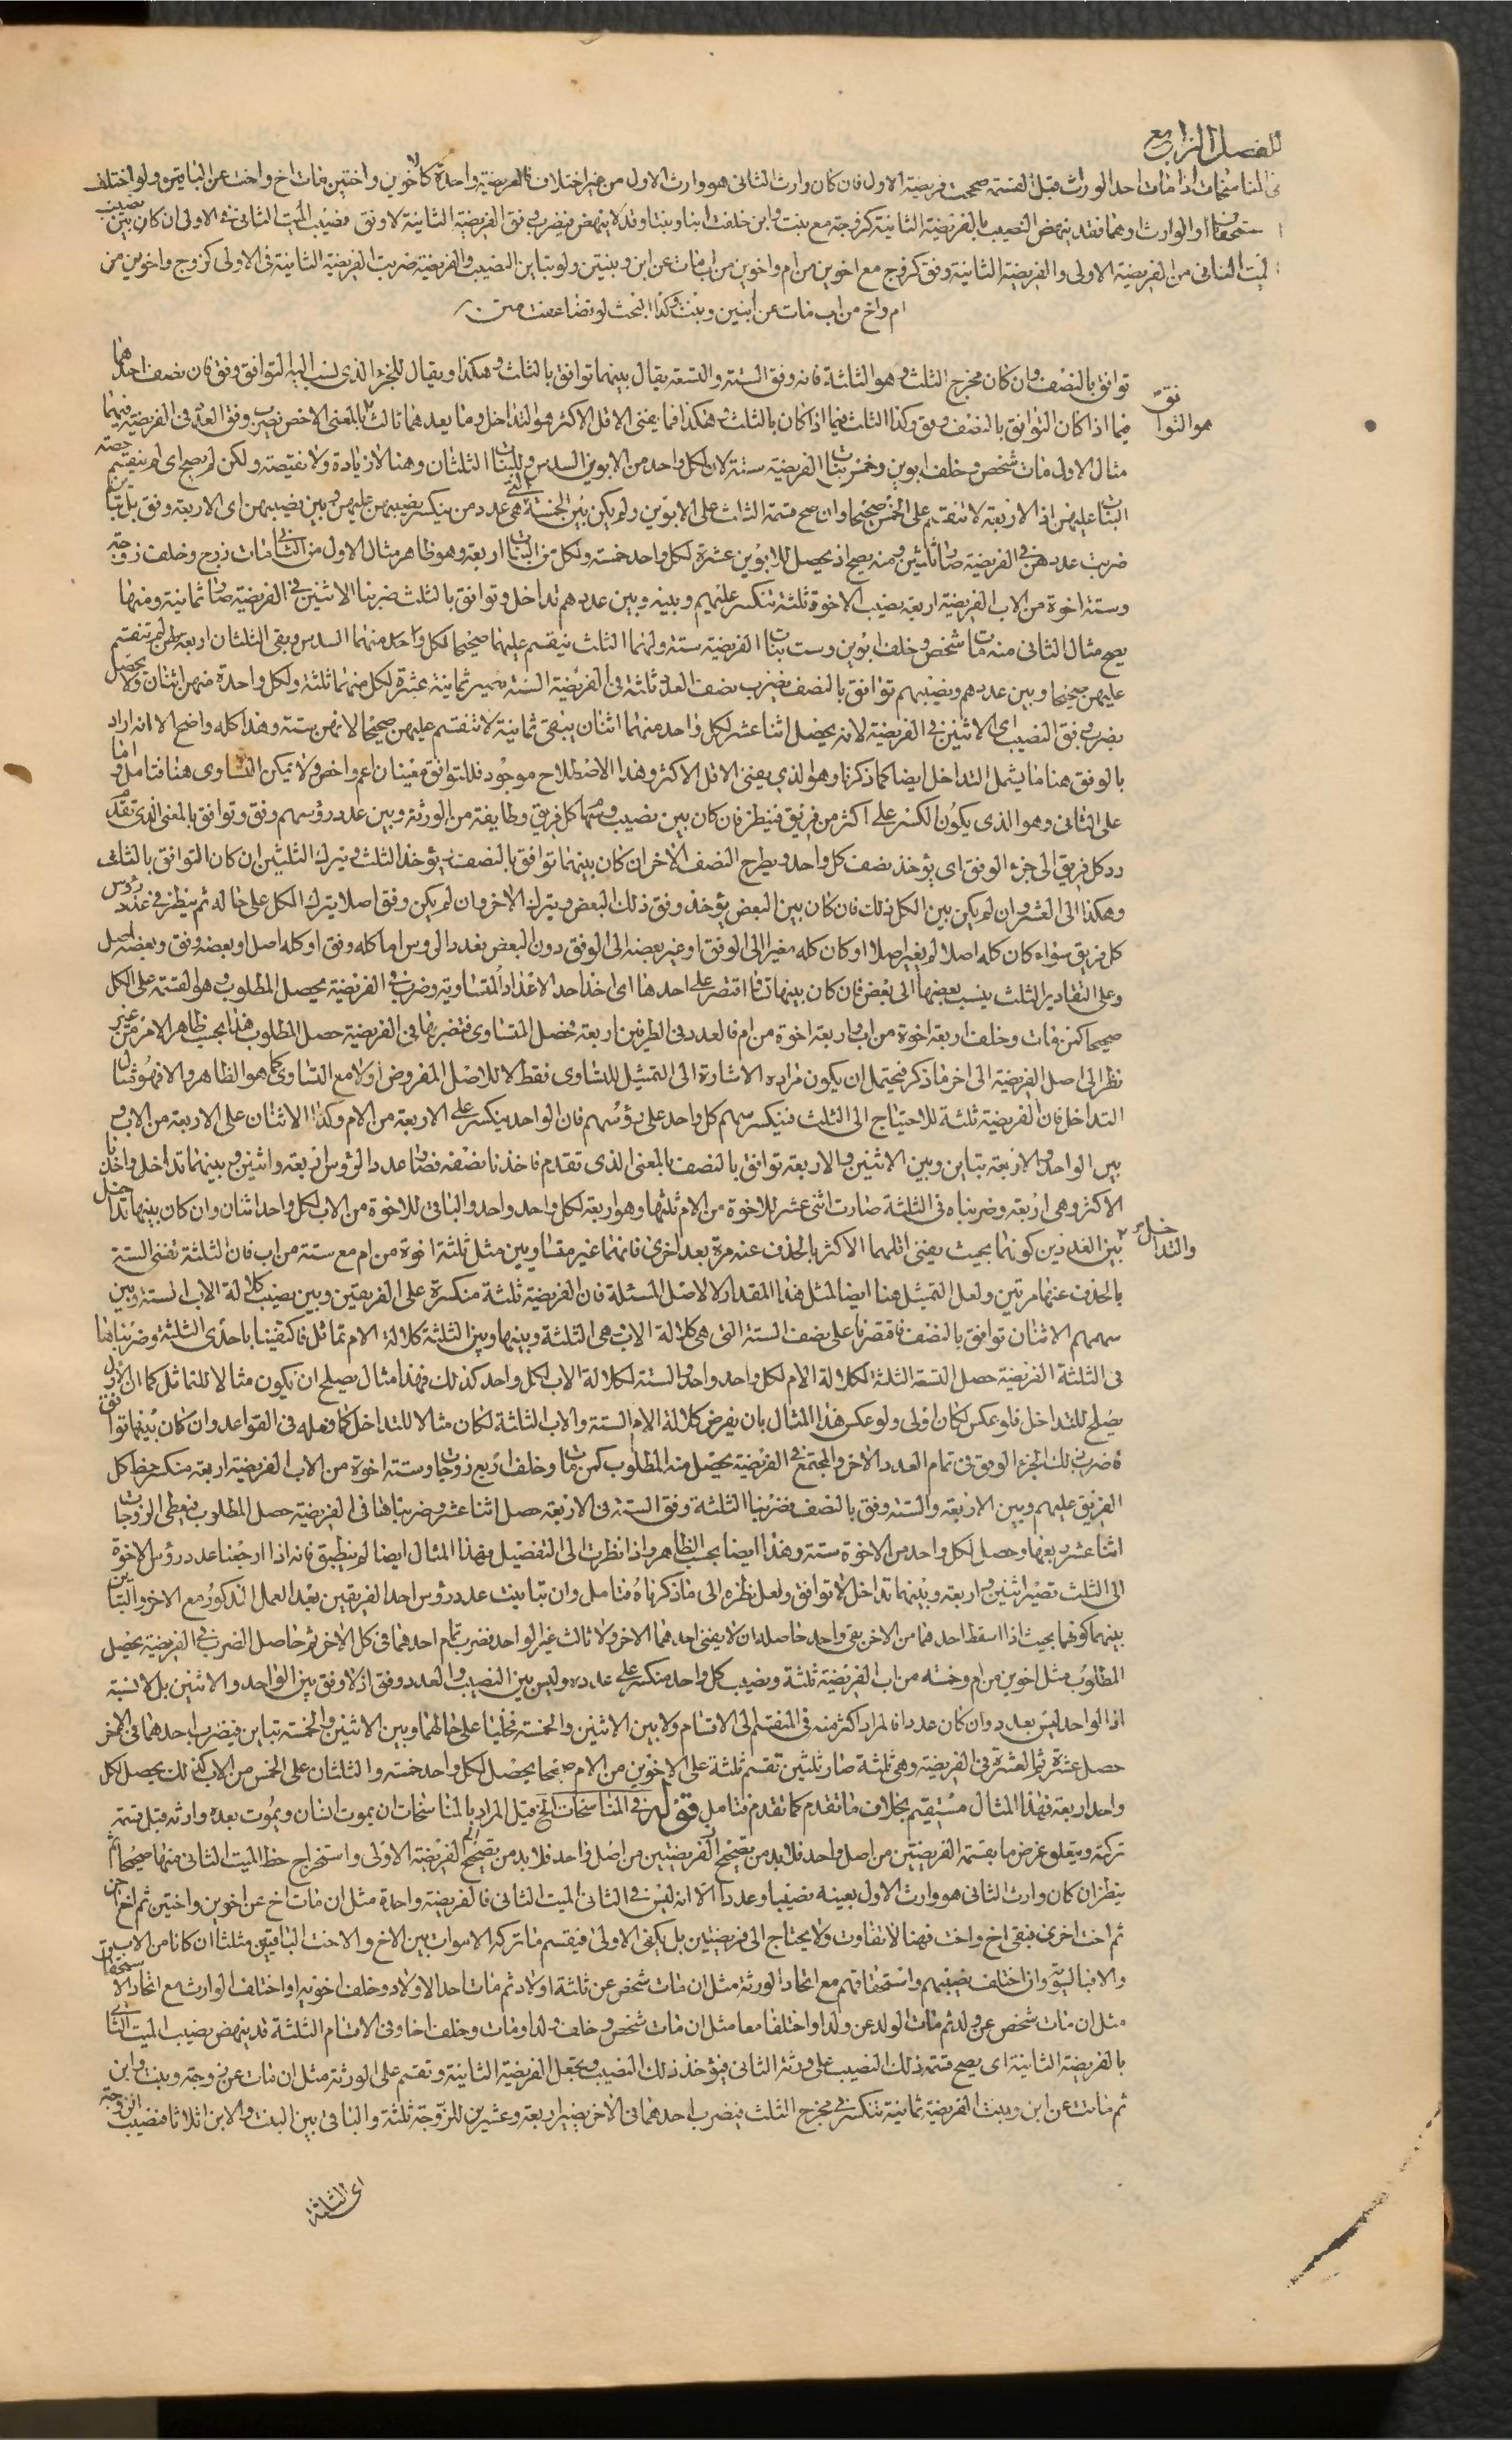 الفصل الرابع
فى المناسخات اذا مات احد الوراث قبل القسمة صححت فريضة الاول فان كان وارث الثانى هو وارث الاول من غير اختلاف فالفريضة واحدة كاخوين واختين مات اخ واخت عن الباقين ولو اختلف
ستحقاق او الوارث او هما فقد ينهض النصيب بالفريضة الثانية كزوجة مع بنت وابن خلفت ابنا وبنتا وقد لا ينهض فيضرب وفق الفريضة الثانية لا وفق نصيب الميت الثانى فى الاولى ان كان بين نصيب
الميت الثانى من الفريضة الاولى والفريضة الثانية وفق كزوج مع اخوين من ام واخوين من اب مات عن ابن وبنتين ولو تباين النصيب والفريضة ضربت الفريضة الثانية فى الاولى كزوج واخوين من
ام واخ من اب مات عن ابنين وبنت وكذا البحث لو تضاعفت
توافق بالنصف وان كان مخرج الثلث وهو الثلثة فانه وفق الستة والتسعة يقال بينهما توافق بالثلث وهكذا ويقال للجزء الذى نسب اليه التوافق وفق فان نصف احدهما
هو التوافق فيما اذا كان التوافق بالنصف وفق وكذا الثلث فيما اذا كان بالثلث وهكذا فما يفنى الاقل الاكثر هو التداخل وما يعدهما ثالث بالمعنى الاخص نضرب وفق العدد فى الفريضة فيهما
مثال الاول مات شخص وخلف ابوين وخمس بنات الفريضة ستة لان لكل واحد من الابوين السدس وللبنات الثلثان وهنا لا زيادة ولا نقيصة ولكن لم يصح اى لم ينقسم حصة
البنات عليهن اذ الاربعة لا تنقسم على الخمس صحيحا وان صح قسمة الثلث على الابوين ولم يكن بين الخمسة التى هى عدد من ينكسر نصيبهن عليهن وبين نصيبهن اى الاربعة وفق بل تباين
ضربت عددهن فى الفريضة صار ثلثين ومنه يصح اذ يحصل للابوين عشرة لكل واحد خمسة ولكل من البنات اربعة وهو ظاهر مثال الاول من الثانى مات زوج وخلف زوجة
وستة اخوة من الاب الفريضة اربعة نصيب الاخوة ثلثة تنكسر عليهم وبينه وبين عددهم تداخل وتوافق بالثلث ضربنا الاثنين فى الفريضة صار ثمانية ومنها
يصح مثال الثانى منه مات شخص وخلف ابوين وست بنات الفريضة ستة ولهما الثلث ينقسم عليهما صحيحا لكل واحد منهما السدس وبقى الثلثان اربعة لهن لم تنقسم
عليهن صحيحا وبين عددهم ونصيبهم توافق بالنصف نضرب نصف العدد ثلثة فى الفريضة الستة يصير ثمانية عشرة لكل منهما ثلثة ولكل واحدة منهن اثنان ولا يحصل
بضرب وفق النصيب اى الاثنين فى الفريضة لانه يحصل اثنا عشر لكل واحد منهما اثنان يبقى ثمانية لا تنقسم عليهن صحيحا لانهن ستة وهذا كله واضح الا انه اراد
بالوفق هنا ما يشمل التداخل ايضا كما ذكرنا وهو الذى يفنى الاقل الاكثر وهذا الاصطلاح موجود فللتوافق معنيان اعم واخص ولا يمكن التساوى هنا فتامل واما
على الثانى وهو الذى يكون الكسر على اكثر من فريق فينظر فان كان بين نصيب وسهام كل فريق وطايفة من الورثة وبين عدد رؤسهم وفق وتوافق بالمعنى الذى تقدم
رد كل فريق الى جزء الوفق اى يؤخذ نصف كل واحد ويطرح النصف الاخر ان كان بينهما توافق بالنصف ويؤخذ الثلث ويترك الثلثين ان كان التوافق بالثلث
وهكذا الى العشر وان لم يكن بين الكل ذلك فان كان بين البعض يؤخذ وفق ذلك البعض ويترك الاخر وان لم يكن وفق اصلا يترك الكل على حاله ثم ينظر فى عدد رؤس
كل فريق سواء كان كله اصلا لم يغير اصلا او كان كله مغيرا الى الوفق او غير بعضه الى الوفق دون البعض فعدد الرؤس اما كله وفق او كله اصل او بعضه وفق وبعضه اصل
وعلى التقادير الثلث ينسب بعضها الى بعض فان كان بينها تماثل اقتصر على احدها اى اخذ احد الاعداد المتساوية وضرب فى الفريضة يحصل المطلوب وهو القسمة على الكل
صحيحا كمن مات وخلف اربعة اخوة من اب واربعة اخوة من ام فالعدد فى الطرفين اربعة فحصل المتساوى فتضربها فى الفريضة حصل المطلوب هذا بحسب ظاهر الامر من غير
نظر الى اصل الفريضة الى اخر ما ذكر فيحتمل ان يكون مراده الاشارة الى التمثيل للتساوى فقط لا للاصل المفروض اولا مع التساوى كما هو الظاهر والا فهو مثال
التداخل فان الفريضة ثلثة للاحتياج الى الثلث فينكسر سهم كل واحد على رؤسهم فان الواحد ينكسر على الاربعة من الام وكذا الاثنان على الاربعة من الاب و
بين الواحد والاربعة تباين وبين الاثنين والاربعة توافق بالنصف بالمعنى الذى تقدم فاخذنا نصفه فصار عدد الرؤس اربعة واثنين وبينهما تداخل واخذنا
الاكثر وهى اربعة وضربناه فى الثلثة صارت اثنى عشر للاخوة من الام ثلثها وهو اربعة لكل واحد واحد والباقى للاخوة من الاب لكل واحد اثنان وان كان بينهما تداخل
والتداخل بين العددين كونهما بحيث يفنى اقلهما الاكثر بالحذف عنه مرة بعد اخرى فانهما غير متساويين مثل ثلثة اخوة من ام مع ستة من اب فان الثلثة تفنى الستة
بالحذف عنها مرتين ولعل التمثيل هنا ايضا لمثل هذا المقدار لا لاصل المسئلة فان الفريضة ثلثة منكسرة على الفريقين وبين نصيب كلالة الاب الستة وبين
سهمهم الاثنان توافق بالنصف فاقتصرنا على نصف الستة التى هى كلالة الاب هى الثلثة وبينها وبين الثلثة كلالة الام تماثل فاكتفينا باحدى الثلثة وضربناها
فى الثلثة الفريضة حصل التسعة الثلثة لكلالة الام لكل واحد واحد والستة لكلالة الاب لكل واحد كذلك فهذا مثال يصلح ان يكون مثالا للتماثل كما ان الاول
يصلح للتداخل فلو عكس لكان اولى ولو عكس هذا المثال بان يفرض كلالة الام الستة والاب الثلثة لكان مثالا للتداخل كما فعله فى القواعد وان كان بينهما توافق
فضرب ذلك الجزء الوفق فى تمام العدد الاخر والمجتمع فى الفريضة يحصل منه المطلوب كمن مات وخلف اربع زوجات وستة اخوة من الاب الفريضة اربعة منكسر حظ كل
الفريق عليهم وبين الاربعة والستة وفق بالنصف فضربنا الثلثة وفق الستة فى الاربعة حصل اثنا عشر وضربناها فى الفريضة حصل المطلوب فيعطى الزوجات
اثنا عشر ربعها وحصل لكل واحد من الاخوة ستة وهذا ايضا بحسب الظاهر واذا نظرت الى التفصيل فهذا المثال ايضا لم ينطبق فانه اذا ارجعنا عدد رؤس الاخوة
الى الثلث تصير اثنين واربعة وبينهما تداخل لا توافق ولعل نظره الى ما ذكرناه فتامل وان تباينت عدد رؤس احد الفريقين بعد العمل المذكور مع الاخر والتباين
بينهما كونهما بحيث اذا اسقط احدهما من الاخر بقى واحد حاصله ان لا يفنى احدهما الاخر ولا ثالث غير الواحد فضرب تمام احدهما فى كل الاخر ثم حاصل الضرب فى الفريضة يحصل
المطلوب مثل اخوين من ام وخمسة من اب الفريضة ثلثة ونصيب كل واحد منكسر على عدده وليس بين النصيب والعدد وفق اذ لا وفق بين الواحد والاثنين بل لا نسبة
اذ الواحد ليس بعدد وان كان عددا فالمراد اكثر منه فى المنقسم الى الاقسام ولا بين الاثنين والخمسة فخليا على حالهما وبين الاثنين والخمسة تباين فيضرب احدهما فى الاخر
حصل عشرة ثم العشرة فى الفريضة وهى ثلثة صار ثلثين تقسم ثلثه على الاخوين من الام صحيحا يحصل لكل واحد خمسة والثلثان على الخمس من الاب كذلك يحصل لكل
واحد اربعة فهذا المثال مستقيم بخلاف ما تقدم كما تقدم فتامل قوله فى المناسخات الخ قيل المراد بالمناسخات ان يموت انسان ويموت بعده وارثه قبل قسمة
تركته ويتعلق غرض ما بقسمة الفريضتين من اصل واحد فلا بد من تصحيح الفريضتين من اصل واحد فلا بد من تصحيح الفريضة الاولى واستخراج حظ الميت الثانى منها صحيحا ثم
ينظر ان كان وارث الثانى هو وارث الاول بعينه نصيبا وعددا الا انه ليس فى الثانى الميت الثانى فالفريضة واحدة مثل ان مات اخ عن اخوين واختين ثم اخ اخر
ثم اخت اخرى فبقى اخ واخت فهنا لا تفاوت ولا يحتاج الى فريضتين بل يكفى الاولى فيقسم ما تركه الاموات بين الاخ والاخت الباقيين مثلثا ان كانا من الاب
والا فبالسوية وان اختلف نصيبهم واستحقاقهم مع اتحاد الورثة مثل ان مات شخص عن ثلثة اولاد ثم مات احد الاولاد وخلف اخويه او اختلف الوارث مع اتحاد الاستحقاق
مثل ان مات شخص عن ولد ثم مات الولد عن ولد او اختلفا معا مثل ان مات شخص وخلف ولدا ومات وخلف اخا وفى الاقسام الثلثة قد ينهض نصيب الميت الثانى
بالفريضة الثانية اى يصح قسمة ذلك النصيب على ورثة الثانى فيؤخذ ذلك النصيب ويجعل الفريضة الثانية وتقسم على الورثة مثل ان مات عن زوجة وبنت وابن
ثم ماتت عن ابن وبنت الفريضة ثمانية تنكسر فى مخرج الثلث فيضرب احدهما فى الاخر يصير اربعة وعشرين للزوجة ثلثة والباقى بين البنت والابن اثلاثا فنصيب الزوجة
اى الثلثة